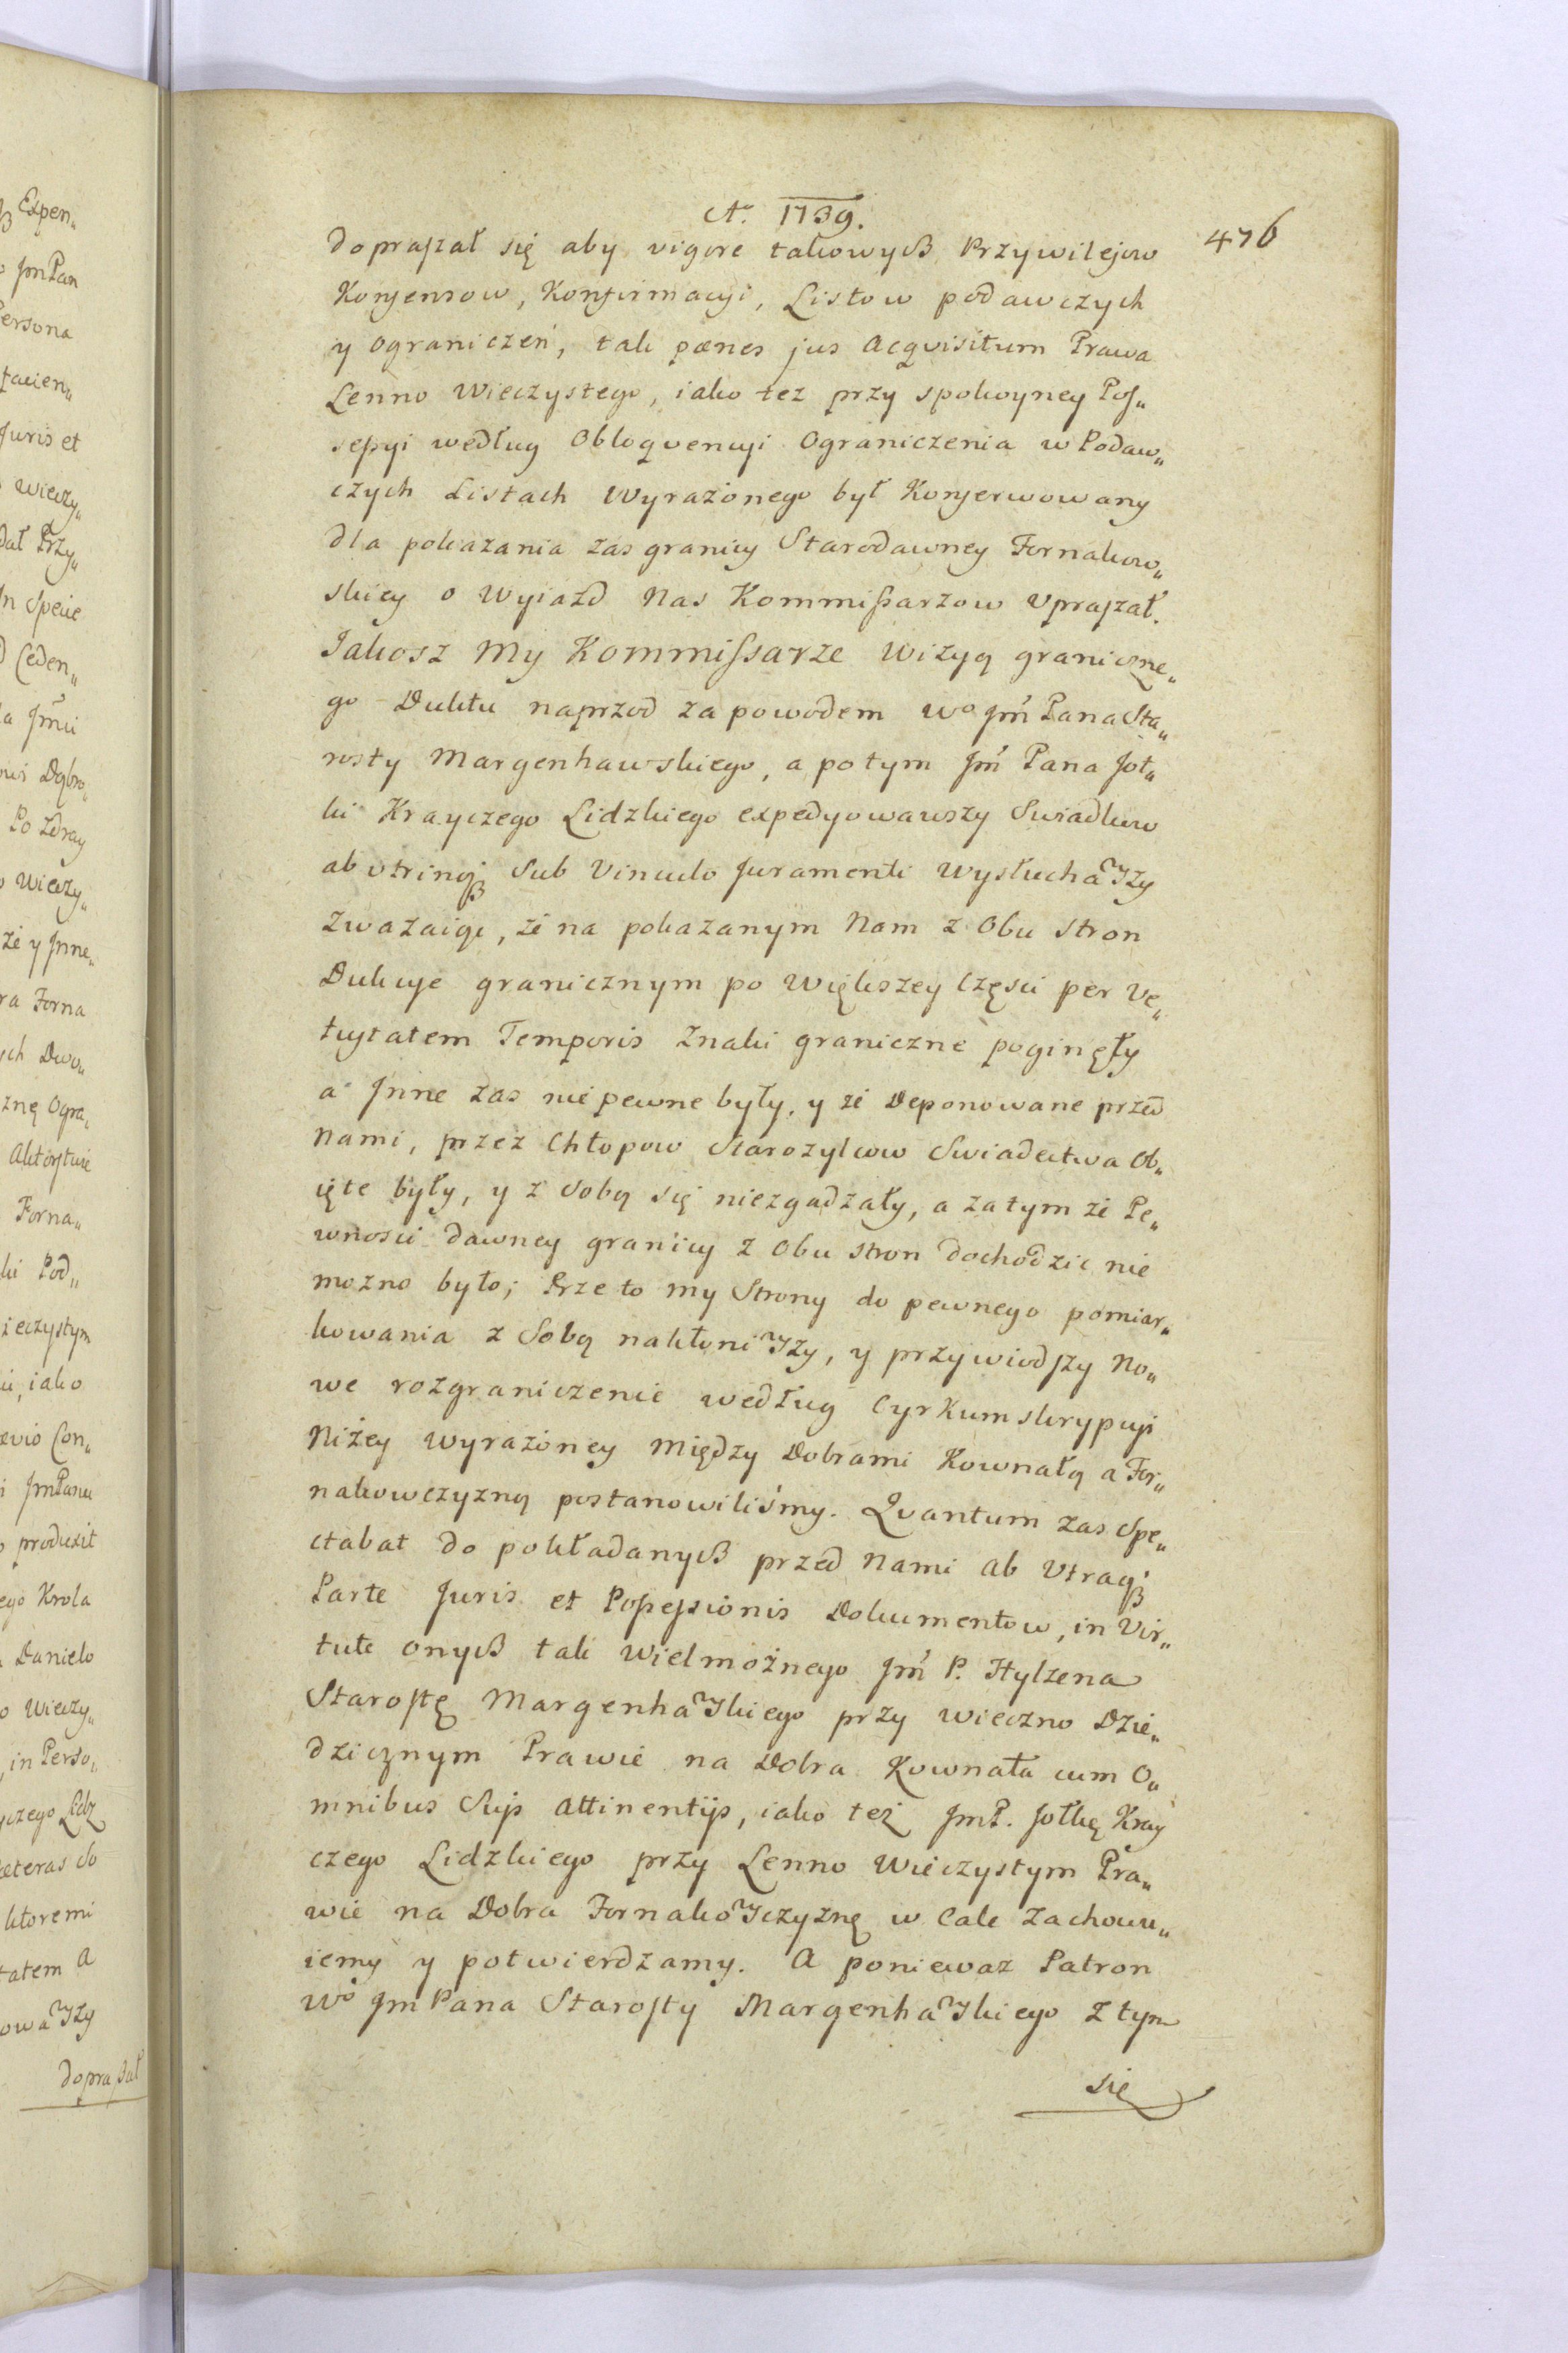 A. 1739.
476
dopraszał się aby vigore takowych Przywilejow
Konsensow, Konfirmacyi, Listow podawczych
y Ograniczeń, tak pænes jus Acqvisitum Prawa
Lenno Wieczystego, iako tez przy spokoyney Pos„
sessyi według Obloqvencyi Ograniczenia w Podaw„
czych Listach Wyrażonego był Konserwowany
dla pokazania zas granicy Starodawney Fornakow„
skiey o Wyiazd Nas Kommissarzow Vpraszał.
Jakosz My Kommissarze Wizyą graniczne„
go Duktu naprzod za powodem Wo Jm Pana Sta„
rosty Margenhawskiego, a potym Jm Pana Joł„
ki Krayczego Lidzkiego expedyowawszy Swiadkow
ab vtrinq3 Sub Vinculo Juramenti Wysłuchawszy
Zwazaiąc, że na pokazanym Nam z Obu Stron
Dukcye granicznym po Większey Części per Ve„
tustatem Temporis Znaki graniczne poginęły
a Jnne zas nie pewne były, y ze Deponowane przed
Nami, przez Chłopow Starozylcow Swiadectwa Ob„
ięte były, y z Sobą się niezgadzały, a zatym ze Pe„
wnosci dawney granicy z Obu stron dochodzic nie
mozno było; Prze to my Strony do pewnego pomiar„
kowania z Sobą nakłoniwszy, y przywiodszy No„
we rozgraniczenie według Cyrkumskrypcyi
Niżey Wyrażoney Między Dobrami Kownatą a For„
nakowczyzną postanowiliśmy. Qvantum zas Spe„
ctabat do pokładanych przed Nami Ab Vtraq3
Parte Juris et Possessionis Dokumentow, in Vir„
tute onych tak Wielmożnego Jm P. Hylzena
Starostę Margenhawskiego przy Wieczno Dzie„
dzicznym Prawie na Dobra Kownata cum O„
mnibus Suis Attinentijs, iako też JmP. Jołkę Kray
czego Lidzkiego przy Lenno Wieczystym Pra„
wie na Dobra Fornakowczyznę w Cale Zachowu„
iemy y potwierdzamy. A poniewaz Patron
Wo Jm Pana Starosty Margenhawskiego z tym
się